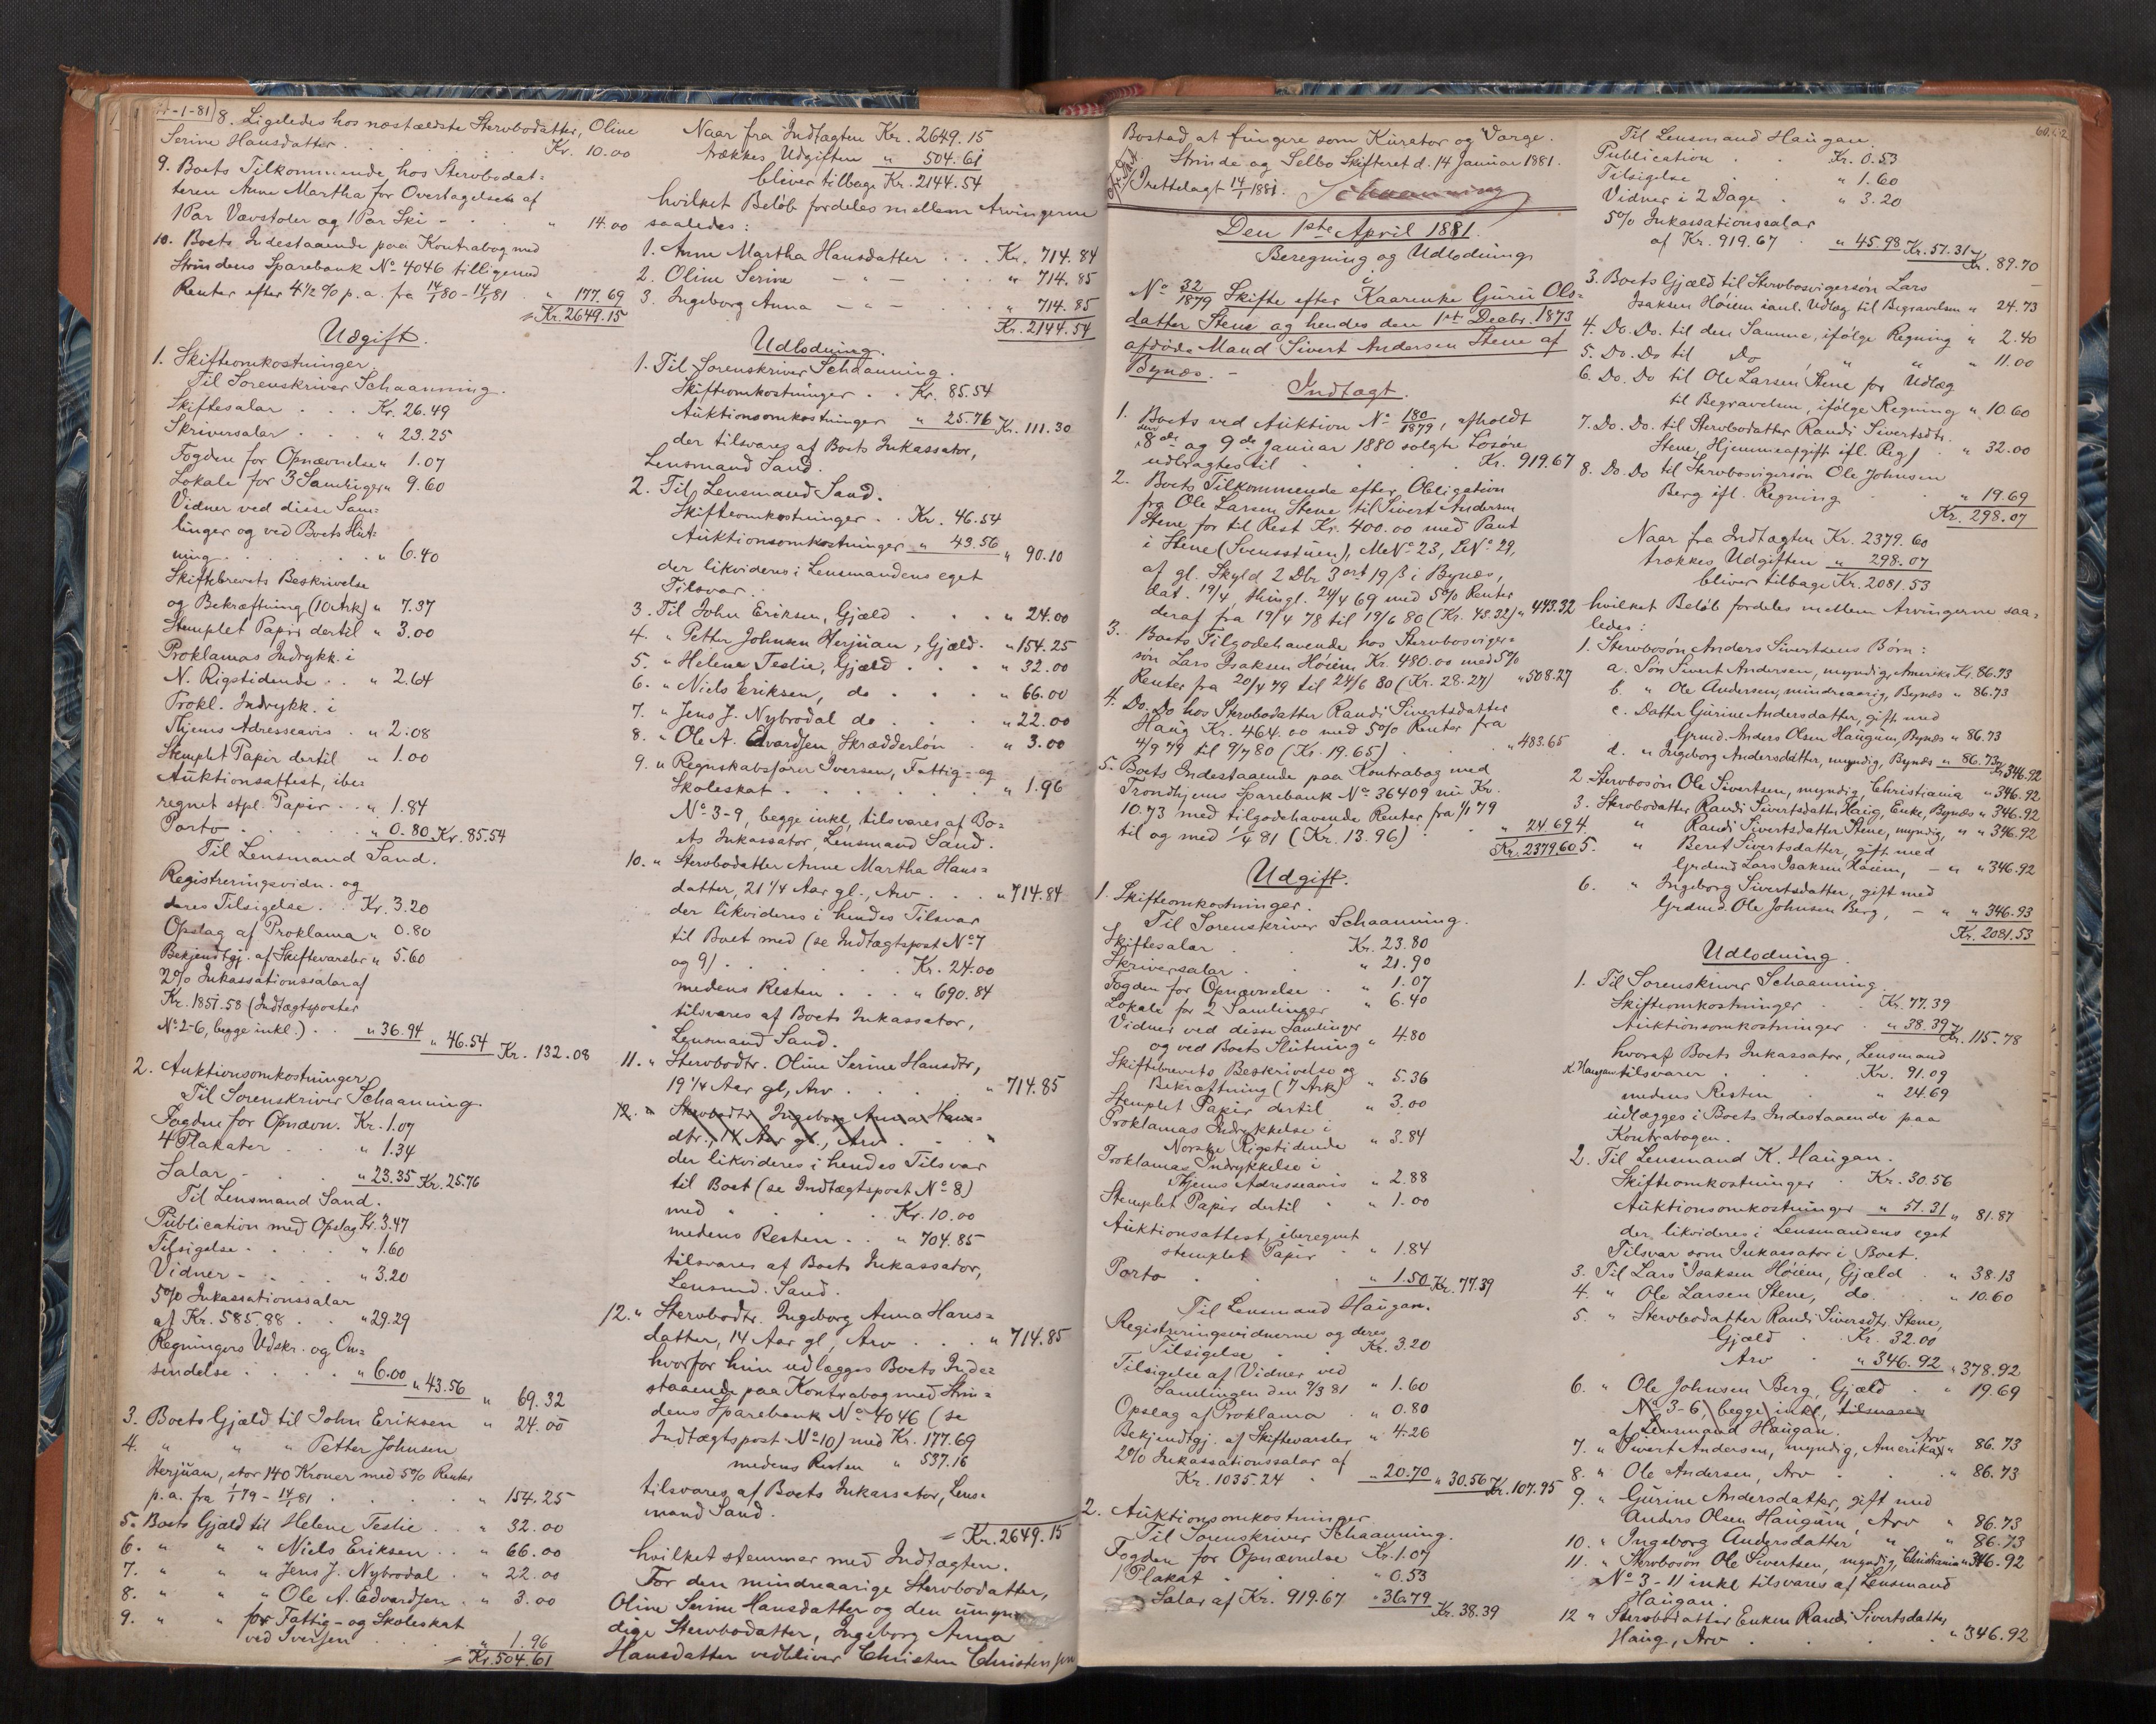 -1-81
8. Ligeledes hos næstældste Stervbodatter, Oline
Serine Hansdatter . . . . Kr. 10.00
9. Boets Tilkommende hos Stervbodat=
teren Anne Martha for Overtagelsen af
1 Par Vævstoler og 1 Par Ski - . " 14.00
10. Boets Indestaaende paa Kontrabog med
Strindens Sparebank No 4046 tilligemed
Renter efter 4 1/2 % p. a. fra 14/1 80 - 14/1 81 " 177.69
= Kr. 2649.15
Udgift.
1. Skifteomkostninger.
Til Sorenskriver Schaanning.
Skiftesalar . . . Kr. 26.49
Skriversalar . . . " 23.25
Fogden for Opnævnelse " 1.07
Lokale for 3 Samlinger " 9.60
Vidner ved disse Sam=
linger og ved Boets Slut=
ning . . . . " 6.40
Skiftebrevets Beskrivelse
og Bekræftning (10 Ark) " 7.37
Stemplet Papir dertil " 3.00
Proklamas Indrykk. i
N. Rigstidende . . " 2.64
Prokl. Indrykk. i
Thjems Adresseavis . " 2.08
Stemplet Papir dertil " 1.00
Auktionsattest, ibe=
regnet stpl. Papir . . " 1.84
Porto . . . . " 0.80 Kr. 85.54
Til Lensmand Sand.
Registreringsvidn. og
deres Tilsigelse . . Kr. 3.20
Opslag af Proklama " 0.80
Bekjendtgj. af Skiftevarsler " 5.60
2% Inkassationssalar af
Kr. 1851.58 (Indtægtsposter
No 2-6, begge inkl.) . . " 36.94 " 46.54 Kr. 132.08
2. Auktionsomkostninger
Til Sorenskriver Schaanning
Fogden for Opnævn. Kr. 1.07
4 Plakater . . " 1.34
Salar - . . " 23.35 Kr. 25.76
Til Lensmand Sand.
Publication med Opslag Kr. 3.47
Tilsigelse . . . " 1.60
Vidner - . . . " 3.20
5% Inkassationssalar
af Kr. 585.88 . . " 29.29
Regningers Udskr. og Om=
sendelse . . . . " 6.00 " 43.56 " 69.32
3. Boets Gjæld til John Eriksen " 24.00
4. " " " Petter Johnsen
Herjuan, stor 140 Kroner med 5% Renter
p. a. fra 1/1 79 - 14/1 81 . . . . " 154.25
5. Boets Gjæld til Helene Teslie . . " 32.00
6. " " " Niels Eriksen . . " 66.00
7. " " " Jens J. Nybrodal . " 22.00
8. " " " Ole A. Edvardsen . " 3.00
9. " " for Fattig- og Skoleskat
ved Iversen . . . " 1.96
= Kr. 504.61
Naar fra Indtægten Kr. 2649.15
trækkes Udgiften " 504.61
bliver tilbage Kr. 2144.54
hvilket Beløb fordeles mellem Arvingerne
saaledes:
1. Anne Martha Hansdatter . . . Kr. 714.84
2. Oline Serine - " - . . . " 714.85
3. Ingeborg Anna - " - . . . " 714.85
Kr. 2144.54
Udlodning.
1. Til Sorenskriver Schaanning.
Skifteomkostninger . . Kr. 85.54
Auktionsomkostninger " 25.76 Kr. 111.30
der tilsvares af Boets Inkassator,
Lensmand Sand.
2. Til Lensmand Sand.
Skifteomkostninger . . Kr. 46.54
Auktionsomkostninger " 43.56 " 90.10
der likvideres i Lensmandens eget
Tilsvar.
3. Til John Eriksen, Gjæld . . . " 24.00
4. " Petter Johnsen Herjuan, Gjæld. " 154.25
5. " Helene Teslie, Gjæld . . . " 32.00
6. " Niels Eriksen, do . . . " 66.00
7. " Jens J. Nybrodal do . . . " 22.00
8. " Ole A. Edvardsen, Skrædderløn . " 3.00
9. " Regnskabsfører Iversen, Fattig- og
Skoleskat . . . . . . " 1.96
No 3-9, begge inkl, tilsvares af Bo=
ets Inkassator, Lensmand Sand.
10. " Stervbodatter Anne Martha Hans=
datter, 21 1/4 Aar gl., Arv . . . " 714.84
der likvideres i hendes Tilsvar
til Boet med (se Indtægtspost No 7
og 9) . . . . . Kr. 24.00
medens Resten . . . " 690.84
tilsvares af Boets Inkassator,
Lensmand Sand.
11. " Stervbodtr. Oline Serine Hansdtr,
19 1/4 Aar gl, Arv . . . . " 714.85
12. " Stervbodtr Ingeborg Anna Hans=
dtr., 14 Aar gl., Arv . . . "
der likvideres i hendes Tilsvar
til Boet (se Indtægtspost No 8)
med " . . . Kr. 10.00
medens Resten . . " 704.85
tilsvares af Boets Inkassator,
Lensmd. Sand.
12. " Stervbodtr. Ingeborg Anna Hans=
datter, 14 Aar gl, Arv . . . " 714.85
hvorfor hun udlægges Boets Inde=
staaende paa Kontrabog med Strin=
dens Sparebank No 4046 (se
Indtægtspost No 10) med Kr. 177.69
medens Resten " 537.16
tilsvares af Boets Inkassator, Lens=
mand Sand.
= Kr. 2649.15
hvilket stemmer med Indtægten.
For den mindreaarige Stervbodatter,
Oline Serine Hansdatter og den umyn=
dige Stervbodatter, Ingeborg Anna
Hansdatter vedbliver Christen Christensen
Bostad at fungere som Kurator og Værge.
Strinde og Selbo Skifteret d. 14 Januar 1881.
Irettelagt 14/1 1881. Schaanning
Den 1ste April 1881.
Beregning og Udlodning
i
No 32/1879 Skifte efter Kaarenke Guru Ols=
datter Stene og hendes den 1ste Decbr. 1873
afdøde Mand Sivert Andersen Stene af
Bynæs. -
Indtægt.
1. Boets ved Auktion No 180/1879, afholdt
den 8de og 9de Januar 1880 solgte Løsøre
udbragtes til . . . . Kr. 919.67
2. Boets Tilkommende efter Obligation
fra Ole Larsen Stene til Sivert Andersen
Stene for til Rest Kr. 400.00 med Pant
i Stene (Svensstuen), M No 23, L No 29,
af gl. Skyld 2 Dlr 3 ort 19 ß i Bynæs,
dat. 19/4, thingl. 24/4 69 med 5% Renter
deraf fra 19/4 78 til 19/6 80 (Kr. 43.32) " 443.32
3. Boets Tilgodehavende hos Stervbosviger=
søn Lars Isaksen Høiem Kr. 480.00 med 5%
Renter fra 20/4 79 til 24/6 80 (Kr. 28.27) " 508.27
4. Do. Do hos Stervbodatter Randi Sivertsdatter
Haug Kr. 464.00 med 5% Renter fra
4/9 79 til 9/7 80 (Kr. 19.65) . . . " 483.65
5. Boets Indestaaende paa Kontrabog med
Trondhjems Sparebank No 36409 nu Kr.
10.73 med tilgodehavende Renter fra 1/1 79
til og med 1/4 81 (Kr. 13.96) . . " 24.69
Kr. 2379.60
Udgift.
1. Skifteomkostninger.
Til Sorenskriver Schaanning.
Skiftesalar . . Kr. 23.80
Skriversalar . . " 21.90
Fogden for Opnævnelse . " 1.07
Lokale for 2 Samlinger " 6.40
Vidner ved disse Samlinger
og ved Boets Slutning " 4.80
Skiftebrevets Beskrivelse og
Bekræftning (7 Ark) " 5.36
Stemplet Papir dertil " 3.00
Proklamas Indrykkelse i
Norske Rigstidende " 3.84
Proklamas Indrykkelse i
Thjems Adresseavis " 2.88
Stemplet Papir dertil " 1.00
Auktionsattest, iberegnet
stemplet Papir . " 1.84
Porto . . . " 1.50 Kr. 77.39
Til Lensmand Haugan.
Registreringsvidnerne og deres
Tilsigelse . . Kr. 3.20
Tilsigelse af Vidner ved
Samlingen den 9/3 81 " 1.60
Opslag af Proklama . " 0.80
Bekjendtgj. af Skiftevarsler " 4.26
2% Inkassationssalar af
Kr. 1035.24 " 20.70 " 30.56 Kr. 107.95
2. Auktionsomkostninger
Til Sorenskriver Schaanning.
Fogden for Opnævnelse Kr. 1.07
1 Plakat . . " 0.53
Salar af Kr. 919.67 " 36.79 Kr. 38.39
Til Lensmand Haugan.
Publication . . Kr. 0.53
Tilsigelse . . " 1.60
Vidner i 2 Dage . " 3.20
5% Inkassationssalar
af Kr. 919.67 . " 45.98 Kr. 51.31 Kr. 89.70
3. Boets Gjæld til Stervbosvigersøn Lars
Isaksen Høiem ianl. Udlæg til Begravelsen " 24.73
4. Do. Do. til den Samme, ifølge Regning " 2.40
5. Do. Do til Do, " " " 11.00
6. Do. Do til Ole Larsen Stene for Udlæg
til Begravelsen, ifølge Regning " 10.60
7. Do. Do. til Stervbodatter Randi Sivertsdtr.
Stene, Hjemmeafgift ifl. Reg) . " 32.00
8. Do. Do til Stervbosvigersøn Ole Johnsen
Berg ifl. Regning . . . " 19.69
Kr. 298.07
Naar fra Indtægten Kr. 2379.60
trækkes Udgiften " 298.07
bliver tilbage Kr. 2081.53
hvilket Beløb fordeles mellem Arvingerne saa=
ledes:
1. Stervbosøn Anders Sivertsens Børn:
a. Søn Sivert Andersen, myndig, Amerika Kr. 86.73
b. " Ole Andersen, mindreaarig, Bynæs " 86.73
c. Datter Gurine Andersdatter, gift med
Grmd. Anders Olsen Haugum, Bynæs " 86.73
d. " Ingeborg Andersdatter, myndig, Bynæs " 86.73 Kr. 346.92
2. Stervbosøn Ole Sivertsen, myndig, Christiania " 346.92
3. Stervbodatter Randi Sivertsdatter Haug, Enke, Bynæs " 346.92
4. " Randi Sivertsdatter Stene, myndig, " " 346.92
5. " Beret Sivertsdatter, gift med
Grdmd Lars Isaksen Høiem, - " " 346.92
6. " Ingeborg Sivertsdatter, gift med
Grdmd. Ole Johnsen Berg, - " " 346.93
Kr. 2081.53
Udlodning.
1. Til Sorenskriver Schaanning.
Skifteomkostninger . . Kr. 77.39
Auktionsomkostninger . " 38.39 Kr. 115.78
hvoraf Boets Inkassator, Lensmand
K. Haugan tilsvarer . . . Kr. 91.09
medens Resten . . " 24.69
udlægges i Boets Indestaaende paa
Kontrabogen.
2. Til Lensmand K. Haugan.
Skifteomkostninger . Kr. 30.56
Auktionsomkostninger " 51.31 " 81.87
der likvideres i Lensmandens eget
Tilsvar som Inkassator i Boet.
3. Til Lars Isaksen Høiem, Gjæld . " 38.13
4. " Ole Larsen Stene, do. . . " 10.60
5. " Stervbodatter Randi Siversdtr. Stene,
Gjæld . . Kr. 32.00
Arv . . " 346.92 " 378.92
6. " Ole Johnsen Berg, Gjæld . . " 19.69
No 3-6, begge inkl, tilsvares
af Lensmand Haugan.
7. " Sivert Andersen, myndig, Amerika, Arv " 86.73
8. " Ole Andersen, Arv . . . " 86.73
9. " Gurine Andersdatter, gift med
Anders Olsen Haugum, Arv " 86.73
10. " Ingeborg Andersdatter " " 86.73
11. " Stervbosøn Ole Sivertsen, myndig, Christiania " 346.92
No 3-11 inkl tilsvares af Lensmand
Haugan.
12 " Stervbodatter Enken Randi Sivertsdatter
Haug, Arv . . . . . " 346.92